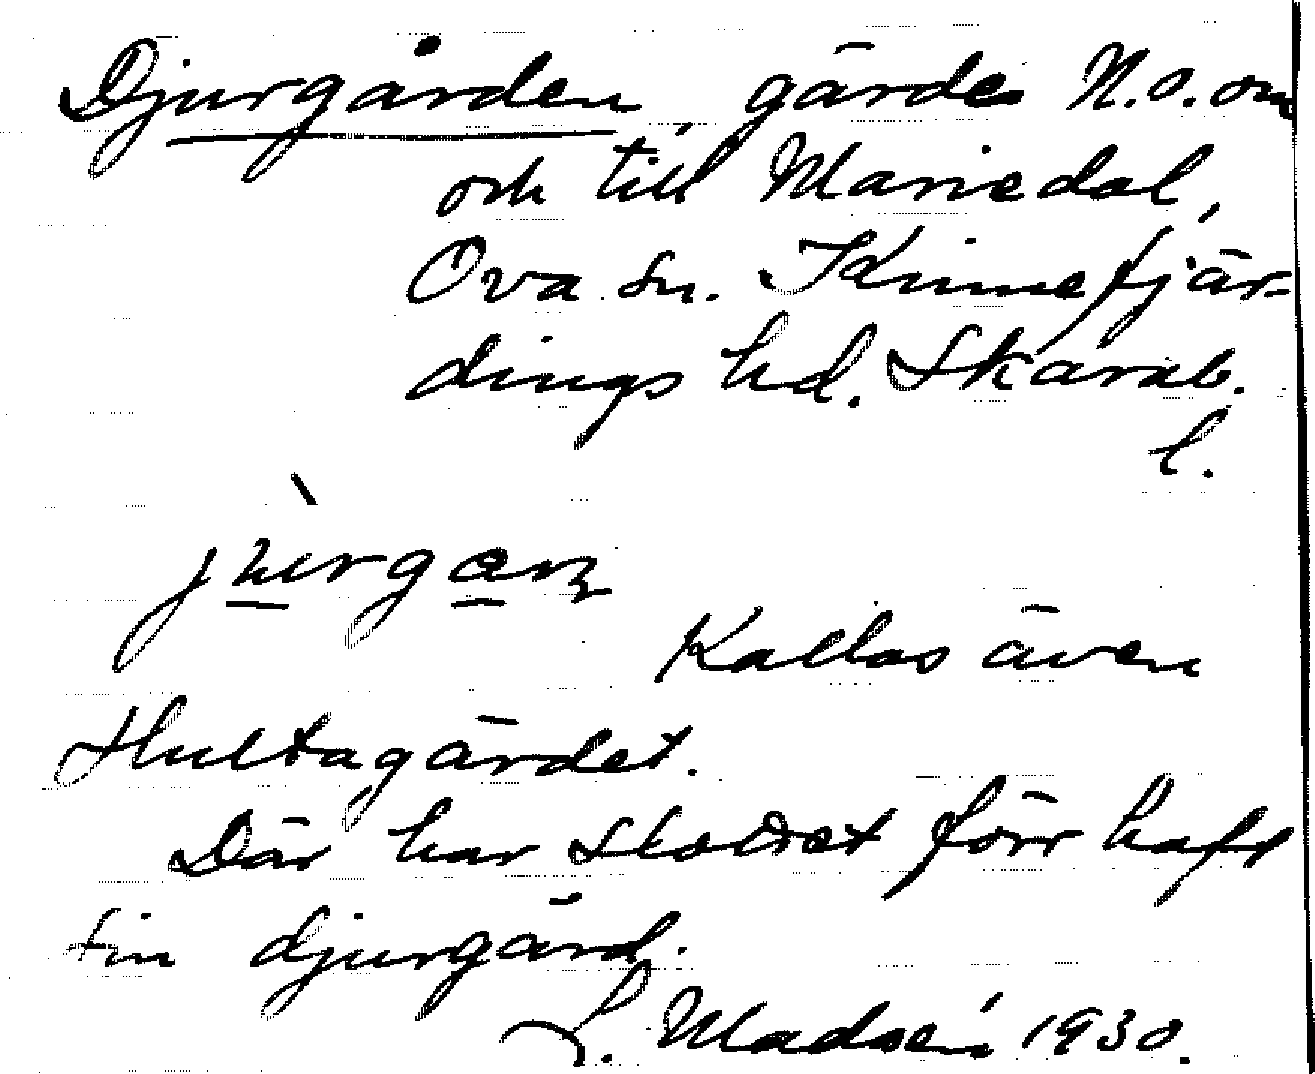 Djurgården, gärde N.O. om
och till Mariedal,
Ova sn. Kinnefjär-
dings hd. Skarab.
l.
Kallas även
Hultagärdet.
Där har slottet förr haft
sin djurgård.
L. Madsén 1930.